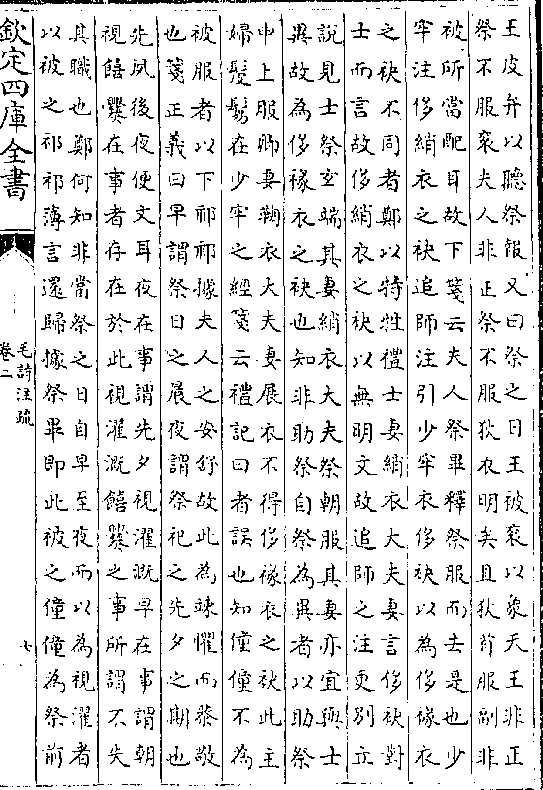 王皮弁以聽祭報又曰祭之日王被衮以象天王非正
祭不服衮夫人非正祭不服狄衣明矣且狄首服副非
被所當配耳故下箋云夫人祭畢釋祭服而去是也少
牢注侈綃衣之袂追師注引少牢衣侈袂以為侈褖衣
之袂不同者鄭以特牲禮士妻綃衣大夫妻言侈袂對
士而言故侈綃衣之袂以無明文故追師之注更别立
說見士祭玄端其妻綃衣大夫祭朝服其妻亦宜與士
異故為侈褖衣之袂也知非助祭自祭為異者以助祭
申上服卿妻鞠衣大夫妻展衣不得侈褖衣之袂此主
婦髲鬄在少牢之經箋云禮記曰者誤也知僮僮不為
被服者以下祁祁據夫人之安舒故此為竦懼而恭敬
也箋正義曰早謂祭日之晨夜謂祭祀之先夕之期也
先夙後夜便文耳夜在事謂先夕視濯溉早在事謂朝
視饎爨在事者存在於此視濯溉饎爨之事所謂不失
其職也鄭何知非當祭之日自早至夜而以為視濯者
以被之祁祁薄言還歸據祭畢即此被之僮僮為祭前
欽定四庫全書
毛詩注疏
卷二
七